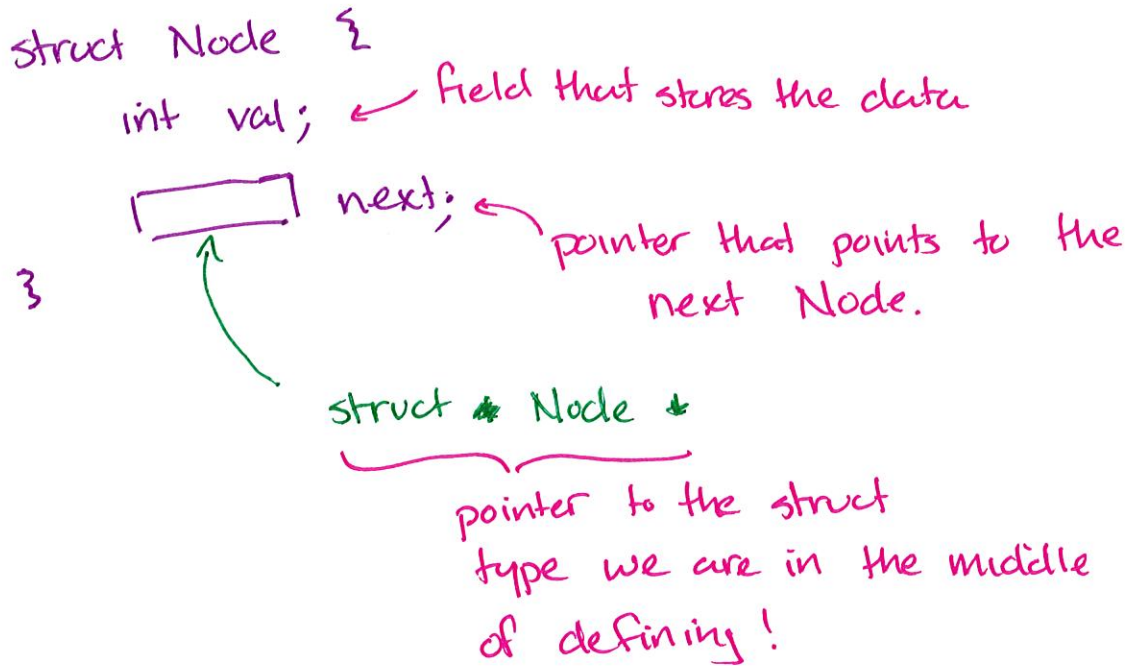 struct Node {
int val; field that stores the data
next; pointer that points to the
next Node.
}
struct Node *
pointer to the struct
type we are in the middle
of defining!